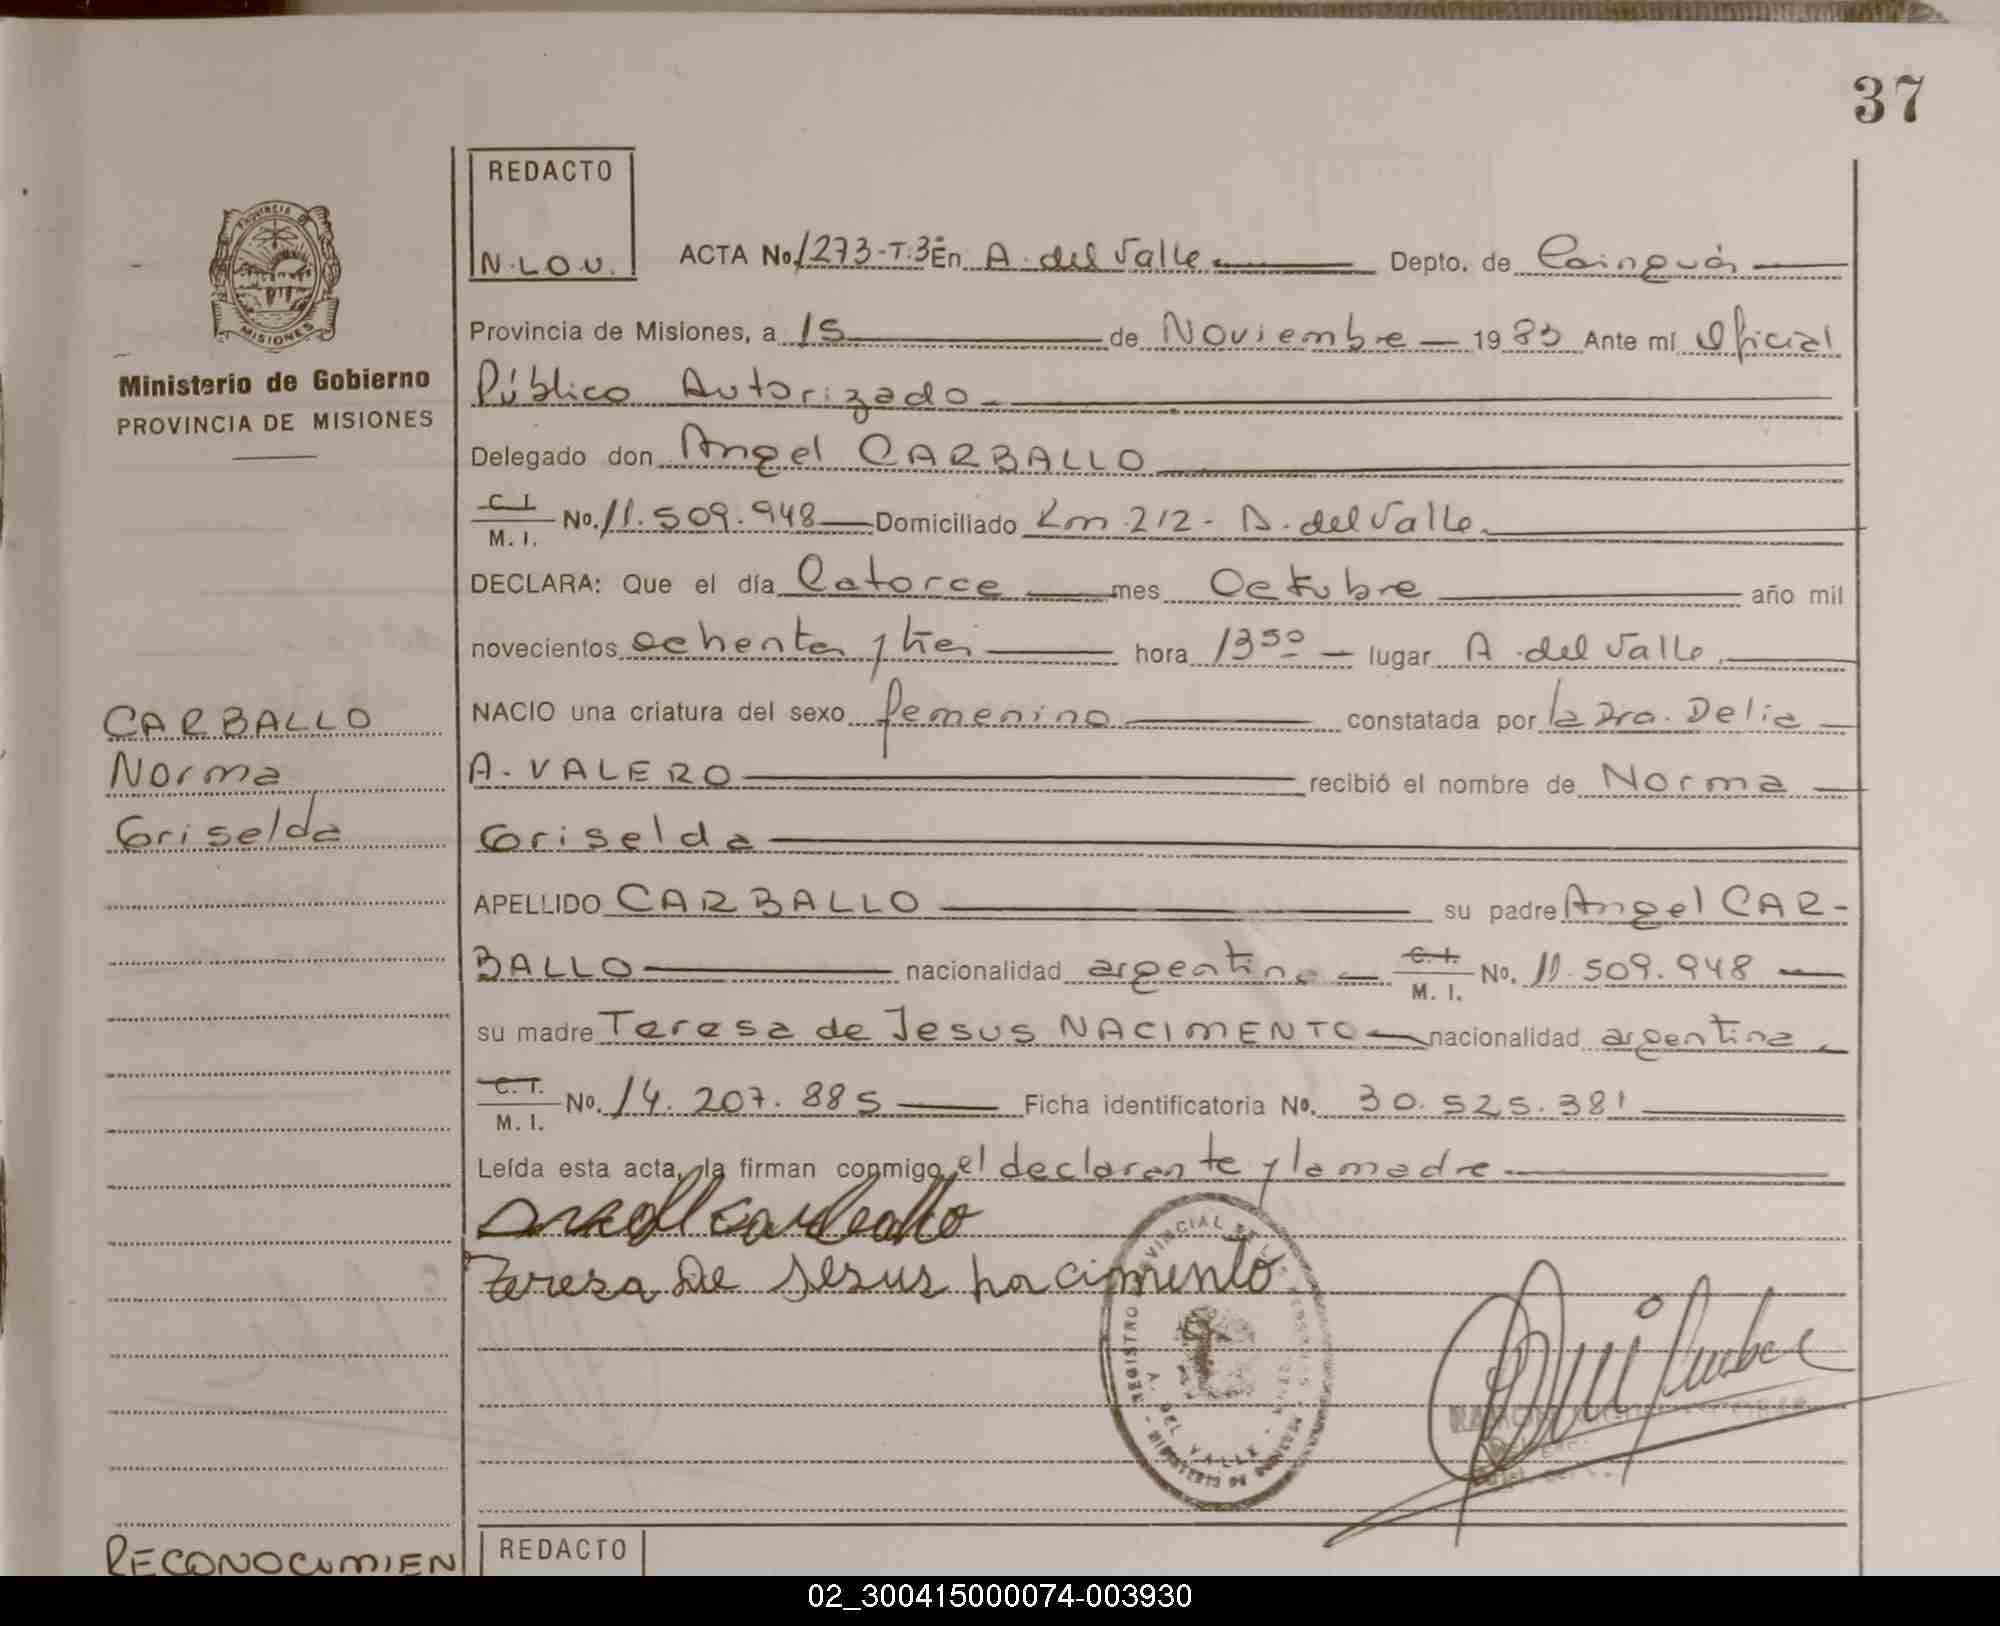 37
REDACTO
N.L.O.U.
PROVINCIA DE
MISIONES
Ministerio de Gobierno
PROVINCIA DE MISIONES
ACTA No. 1273-T.3 En A. del Valle Depto. de Cainguás
Provincia de Misiones, a 15 de Noviembre 1983 Ante mí Oficial
Público Autorizado
Delegado don Angel CARBALLO
C. I. M. I. No. 11.509.948 Domiciliado Km 212 - A. del Valle
DECLARA: Que el día Catorce mes Octubre año mil
novecientos ochenta y tres hora 13 50 lugar A. del Valle
NACIO una criatura del sexo femenino constatada por la Dra. Delia
A. VALERO recibió el nombre de Norma
Griselda
APELLIDO CARBALLO su padre Angel CAR-
BALLO nacionalidad argentina C. I. M. I. No. 11.509.948
su madre Teresa de Jesus NACIMENTO nacionalidad argentina
C. I. M. I. No. 14.207.885 Ficha identificatoria No. 30.525.381
Leída esta acta, la firman conmigo el declarante y la madre
Angel Carballo
Teresa De Jesus nacimento
A. DEL VALLE
CARBALLO
Norma
Griselda
RECONOCIMIEN
REDACTO
02_300415000074-003930